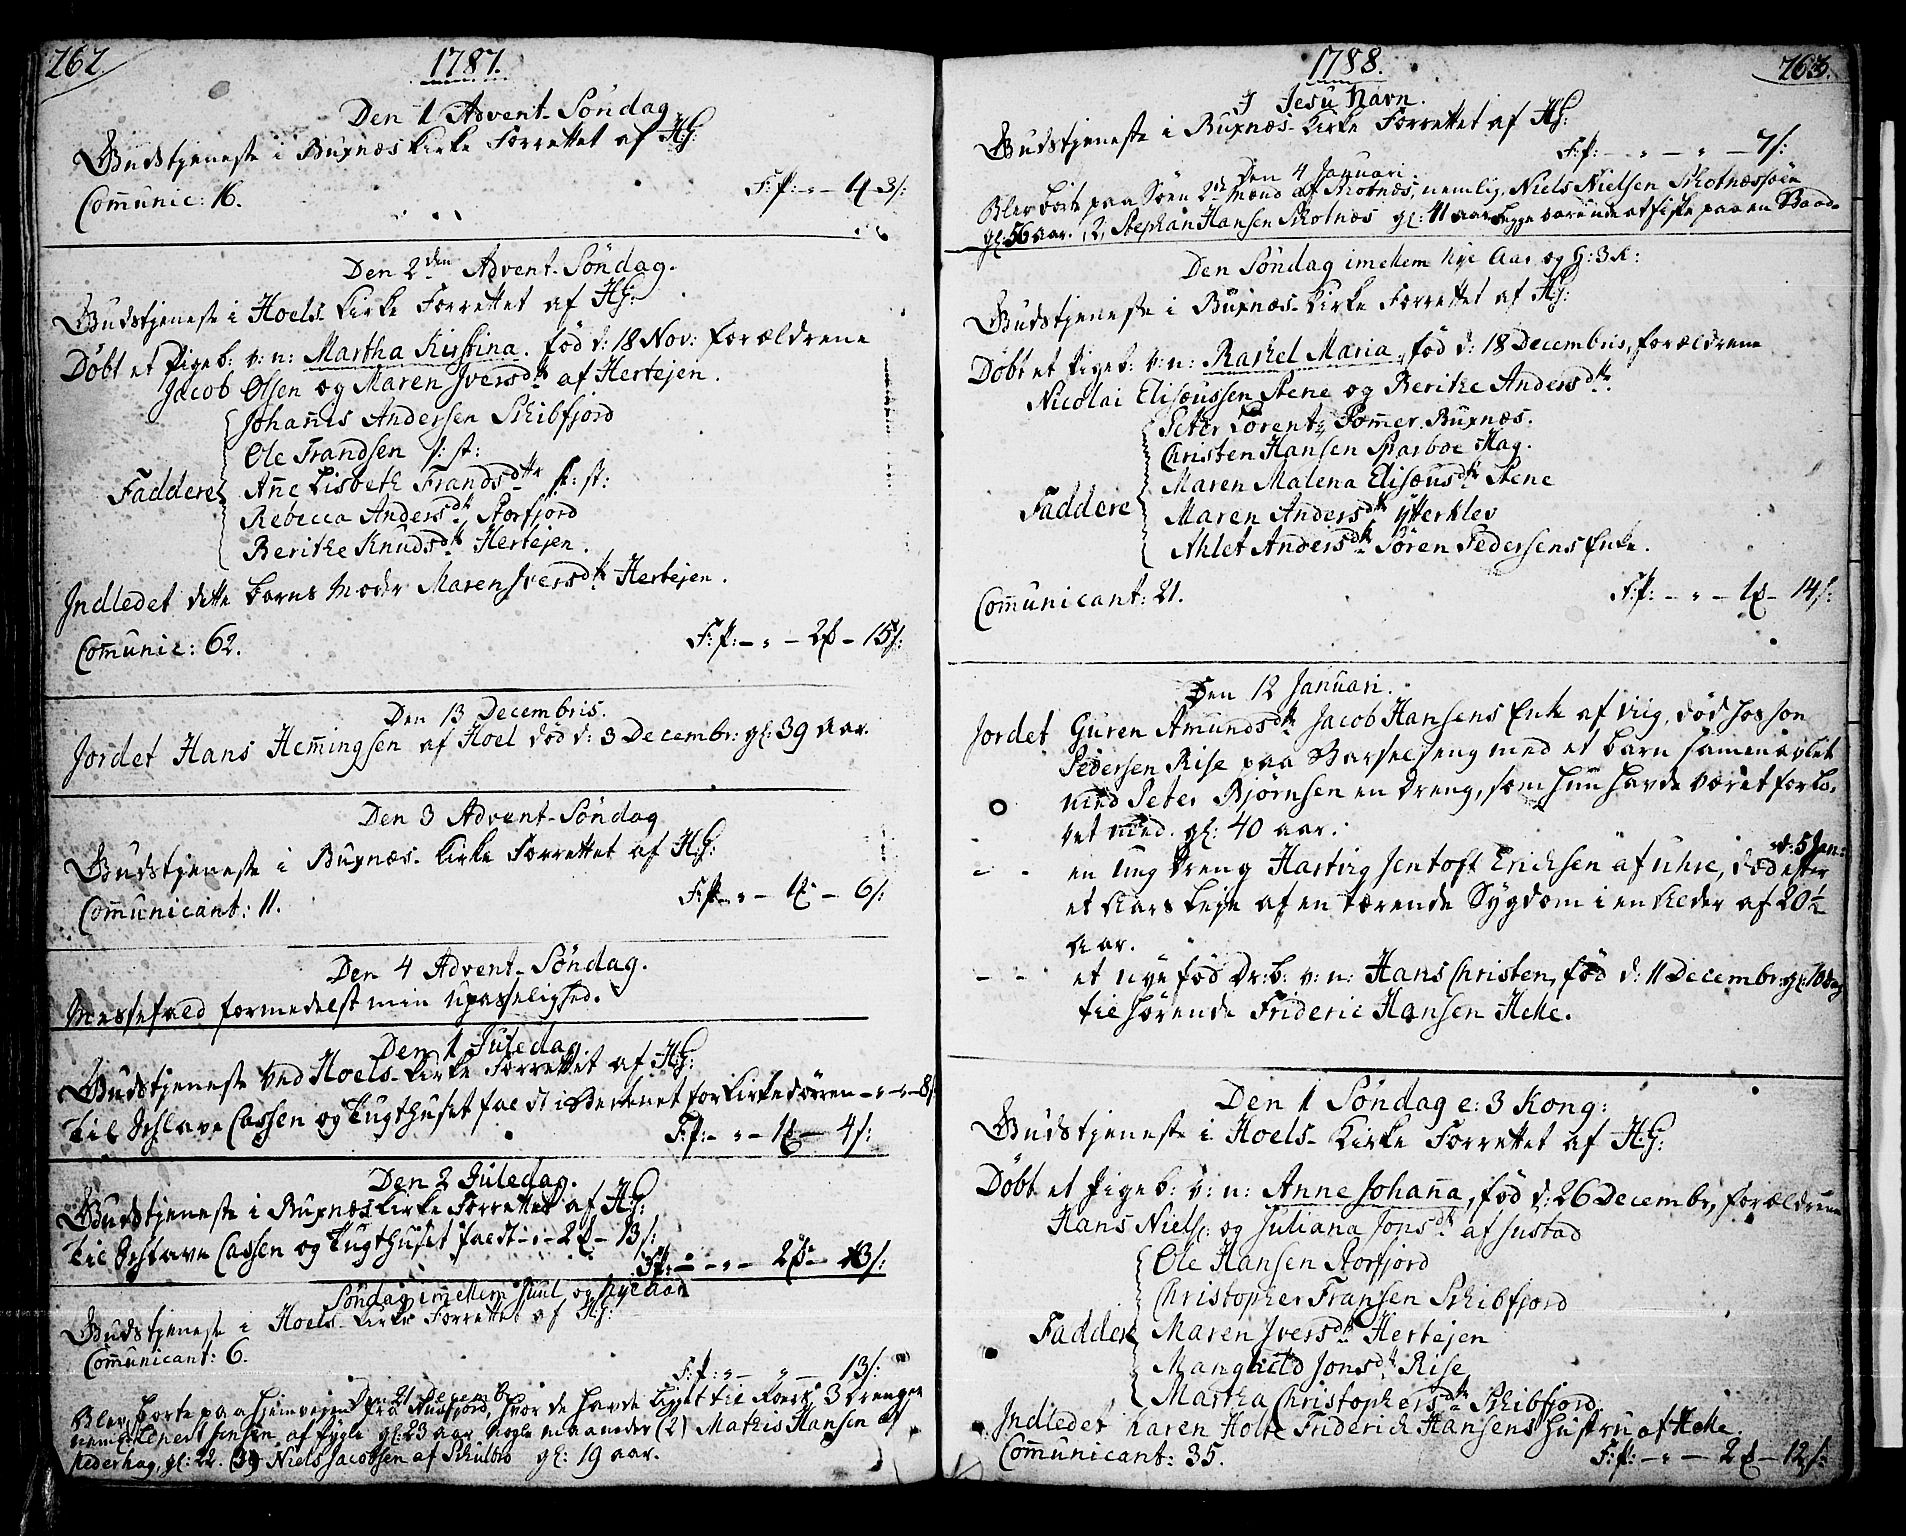 262.
1787.
Den 1 Advent-Søndag
Gudstjeneste i Buxnæs Kirke Forrettet af HG:
F:P: - " - 4 3/:
Comunic: 16.
Den 2den Advent-Søndag.
Gudstjeneste i Hoels-Kirke Forrettet af HG:
Døbt et Pigeb: v: n: Martha Kirstina. fød d: 18 Nov: Forældrene
Jacob Olsen og Maren Iversdtr af Hertejen.
Johañes Andersen Schibfjord
Ole Frandsen s: st:
Añe Lisbeth Frandsdttr s: st:
Faddere
Rebecca Andersdtr Storfjord
Berithe Knudsdtr Hertejen.
Indledet dette Barns Moder Maren Iversdtr Hertejen.
F:P: - " - 2 - 15/:
Comunic: 62.
Den 13 Decembris.
Jordet Hans Hemingsen af Hoel død d: 3 Decembr: gl: 39 Aar.
Den 3 Advent-Søndag
Gudstjeneste i Buxnæs-Kirke Forrettet af HG:
F:P: - " - 1 - 6/:
Comunicant: 11.
Den 4 Advent-Søndag.
Messefald formedelst min Upasselighed.
Den 1 Juledag
Gudstjeneste ved Hoels-Kirke Forrettet af HG:
Til Sclave Cassen og Tugthuset faldt i Bekenet for Kirkedørren - " - " - 8/
F:P: - " - 1 - 4/:
Den 2 Juledag.
Gudstjeneste i Buxnæs Kirke Forrettet af HG:
Til Sclave Cassen og Tugthuset faldt - " - 2 - 13/:
F:P: - " - " - 2 - 13/:
Søndag imellem Juul og Nye Aar
Gudstjeneste i Hoels-Kirke Forrettet af HG:
Comunicant: 6.
F:P: " - " - 13/:
Den 21 Decembr
Blev borte paa Hjemveien fra Nusfjord, hvor de havde ligget til Roers 3 Drenge
neml: Clemet Jensen af Fygle gl: 23 aar nogle maaneder (2) Mathis Hansen af
Nederhag, gl: 22. (3) Niels Jacobsen af Schulbrd gl: 19 aar.
1788.
263.
I Jesu Navn.
Gudstjeneste i Buxnæs-Kirke Forrettet af HG:
F:P: - " - " - 7/:
Den 4 Januari.
Blev borte paa Søen 2de Mænd af Skotnæs, nemlig, Niels Nielsen Skotnæssøen
gl: 56 aar. 2, Stephan Hansen Skotnæs gl: 41 aar begge var ude at fiske paa en Baad
Den Søndag imellem Nye Aar og H: 3 K:
Gudstjeneste i Buxnæs-Kirke Forrettet af HG:
Døbt et Pigeb: v: n: Rachel Maria, fød d: 18 Decembris, Forældrene
Nicolai Elisæussen Stene og Berithe Andersdtr.
Peter Lorentz Pomer Buxnæs.
Christen Hansen Parboe Hag.
Maren Malena Elisæusdtr Stene
Faddere
Maren Andersdtr Ytterklev
Ahlet Andersdtr Søren Pedersens Enke.
F:P: - " - 1 - 14/:
Comunicant: 21.
Den 12 Januari.
Jordet Guren Amundsdtr Jacob Hansens Enke af Viig, død hos Jon
Pedersen Rise paa Barselseng med et Barn sammenavlet
med Peter Bjørnsen en Dreng, som hun havde været forlo-
vet med. gl: 40 aar.
d: 5 Jan:
- - en ung Dreng Hartvig Jentoft Ericksen af Uhre, død efter
et Aars Leje af en tærende Sygdom i en Alder af 20½
Aar.
- - et nyefød Dr:b: v: n: Hans Christen, fød d: 11 Decembr: gl: 10 dag
tilhørende Frideric Hansen Helle.
Den 1 Søndag e: 3 Kong:
Gudstjeneste i Hoels-Kirke Forrettet af H:G:
Døbt et Pigeb: v: n: Anne Johaña, fød d: 26 Decembr, Forældrene
Hans Niels: og Juliana Jonsdtr af Justad
Ole Hansen Storfjord
Christopher Fransen Schibfjord
Faddere
Maren Iversdtr Hertejen
Manghild Jonsdtr Rise
Martha Christophersdtr Schibfjord
Indledet Karen Holte Friderich Hansens Hustru af Helle.
Comunicant: 35.
F:P: - " - 2 - 12/: